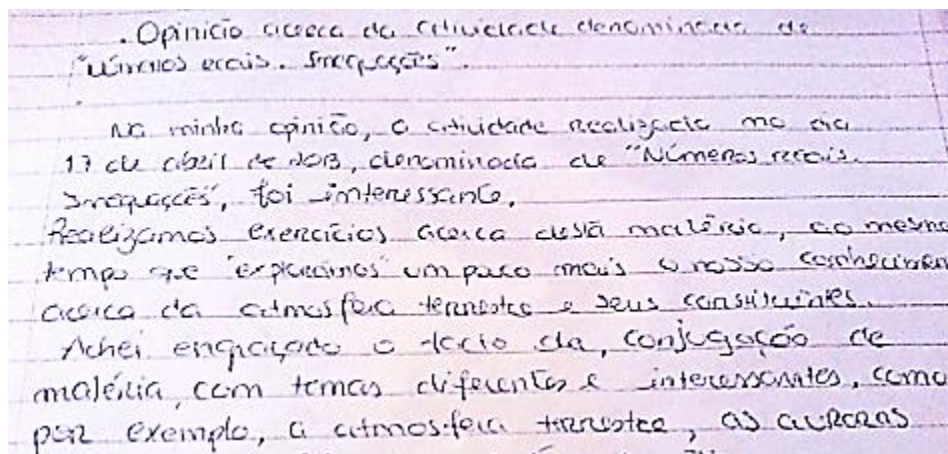 . Opinião acerca da atividade denominada de
"Números reais. Inequações".
Na minha opinião, a atividade realizada no dia
17 de abril de 2013, denominada de "Números reais.
Inequações", foi interessante.
Realizamos exercícios acerca desta matéria, ao mesmo
tempo que "exploramos" um pouco mais o nosso conhecimen
acerca da atmosfera terrestre e seus constituintes.
Achei engraçado o facto da, conjugação de
matéria, com temas diferentes e interessantes, como
por exemplo, a atmosfera terrestre, as auroras